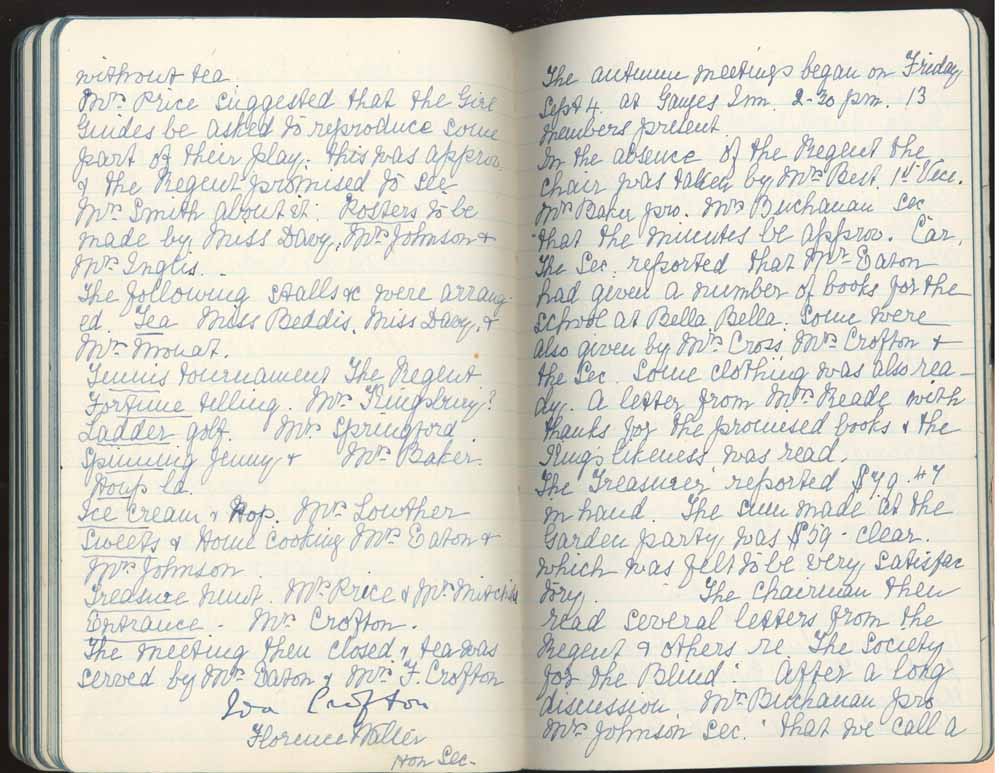 without tea.
Mrs. Price suggested that the Girl
Guides be asked to reproduce some
part of their play. this was approv.
& the Regent promised to see
Mrs. Smith about it. Posters to be
made by Miss Davy, Mrs. Johnson &
Mrs. Inglis. -
The following stalls &c were arrang-
ed. Tea Miss Beddis, Miss Davy, &
Mrs. Mouat.
Tennis tournament The Regent
Fortune telling. Mrs. Kingsbury?
Ladder golf. Mrs. Springford
Spinning Jenny & Mrs. Baker.
Houp la.
Ice cream & Pop. Mrs. Lowther
Sweets & Home Cooking Mrs. Eaton &
Mrs. Johnson
Treasure hunt. Mrs. Price & Mrs.
Entrance - Mrs. Crofton.
The meeting then closed, & tea was
served by Mrs. Eaton & Mrs. F. Crofton
Ida Crofton
Florence Walter
Hon Sec.
The autumn meetings began on Friday
Sept 4. at Ganges Inn. 2-30 pm. 13
members present.
In the absence of the Regent the
chair was taken by Mrs. Best. 1st Vice.
Mrs Baker pro. Mrs Buchanan Sec
that the minutes be approv. Car.
The Sec. reported that Mrs. Eaton
had given a number of books for the
school at Bella Bella. Some were
also given by Mrs. Cross Mrs. Crofton &
the Sec. Some clothing was also rea-
dy. A letter from Mrs. Reade with
thanks for the promised books & the
Kings likeness was read.
The Treasurer reported $49.47
in hand. The sum made at the
Garden party was $59 - clear.
which was felt to be very satisfac
tory. The Chairman then
read several letters from the
Regent & others re "The Society
for the Blind". After a long
discussion Mrs. Buchanan pro
Mrs. Johnson Sec. "that we call a